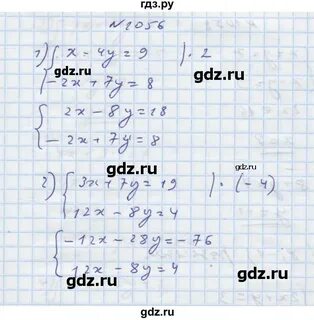 гдз.ру
№1056
1) { x - 4y = 9 | · 2
-2x + 7y = 8
{ 2x - 8y = 18
-2x + 7y = 8
gdz.ru
gdz.ru
2) { 3x + 7y = 19 | · (-4)
12x - 8y = 4
{ -12x - 28y = -76
12x - 8y = 4
gdz.ru
gdz.ru